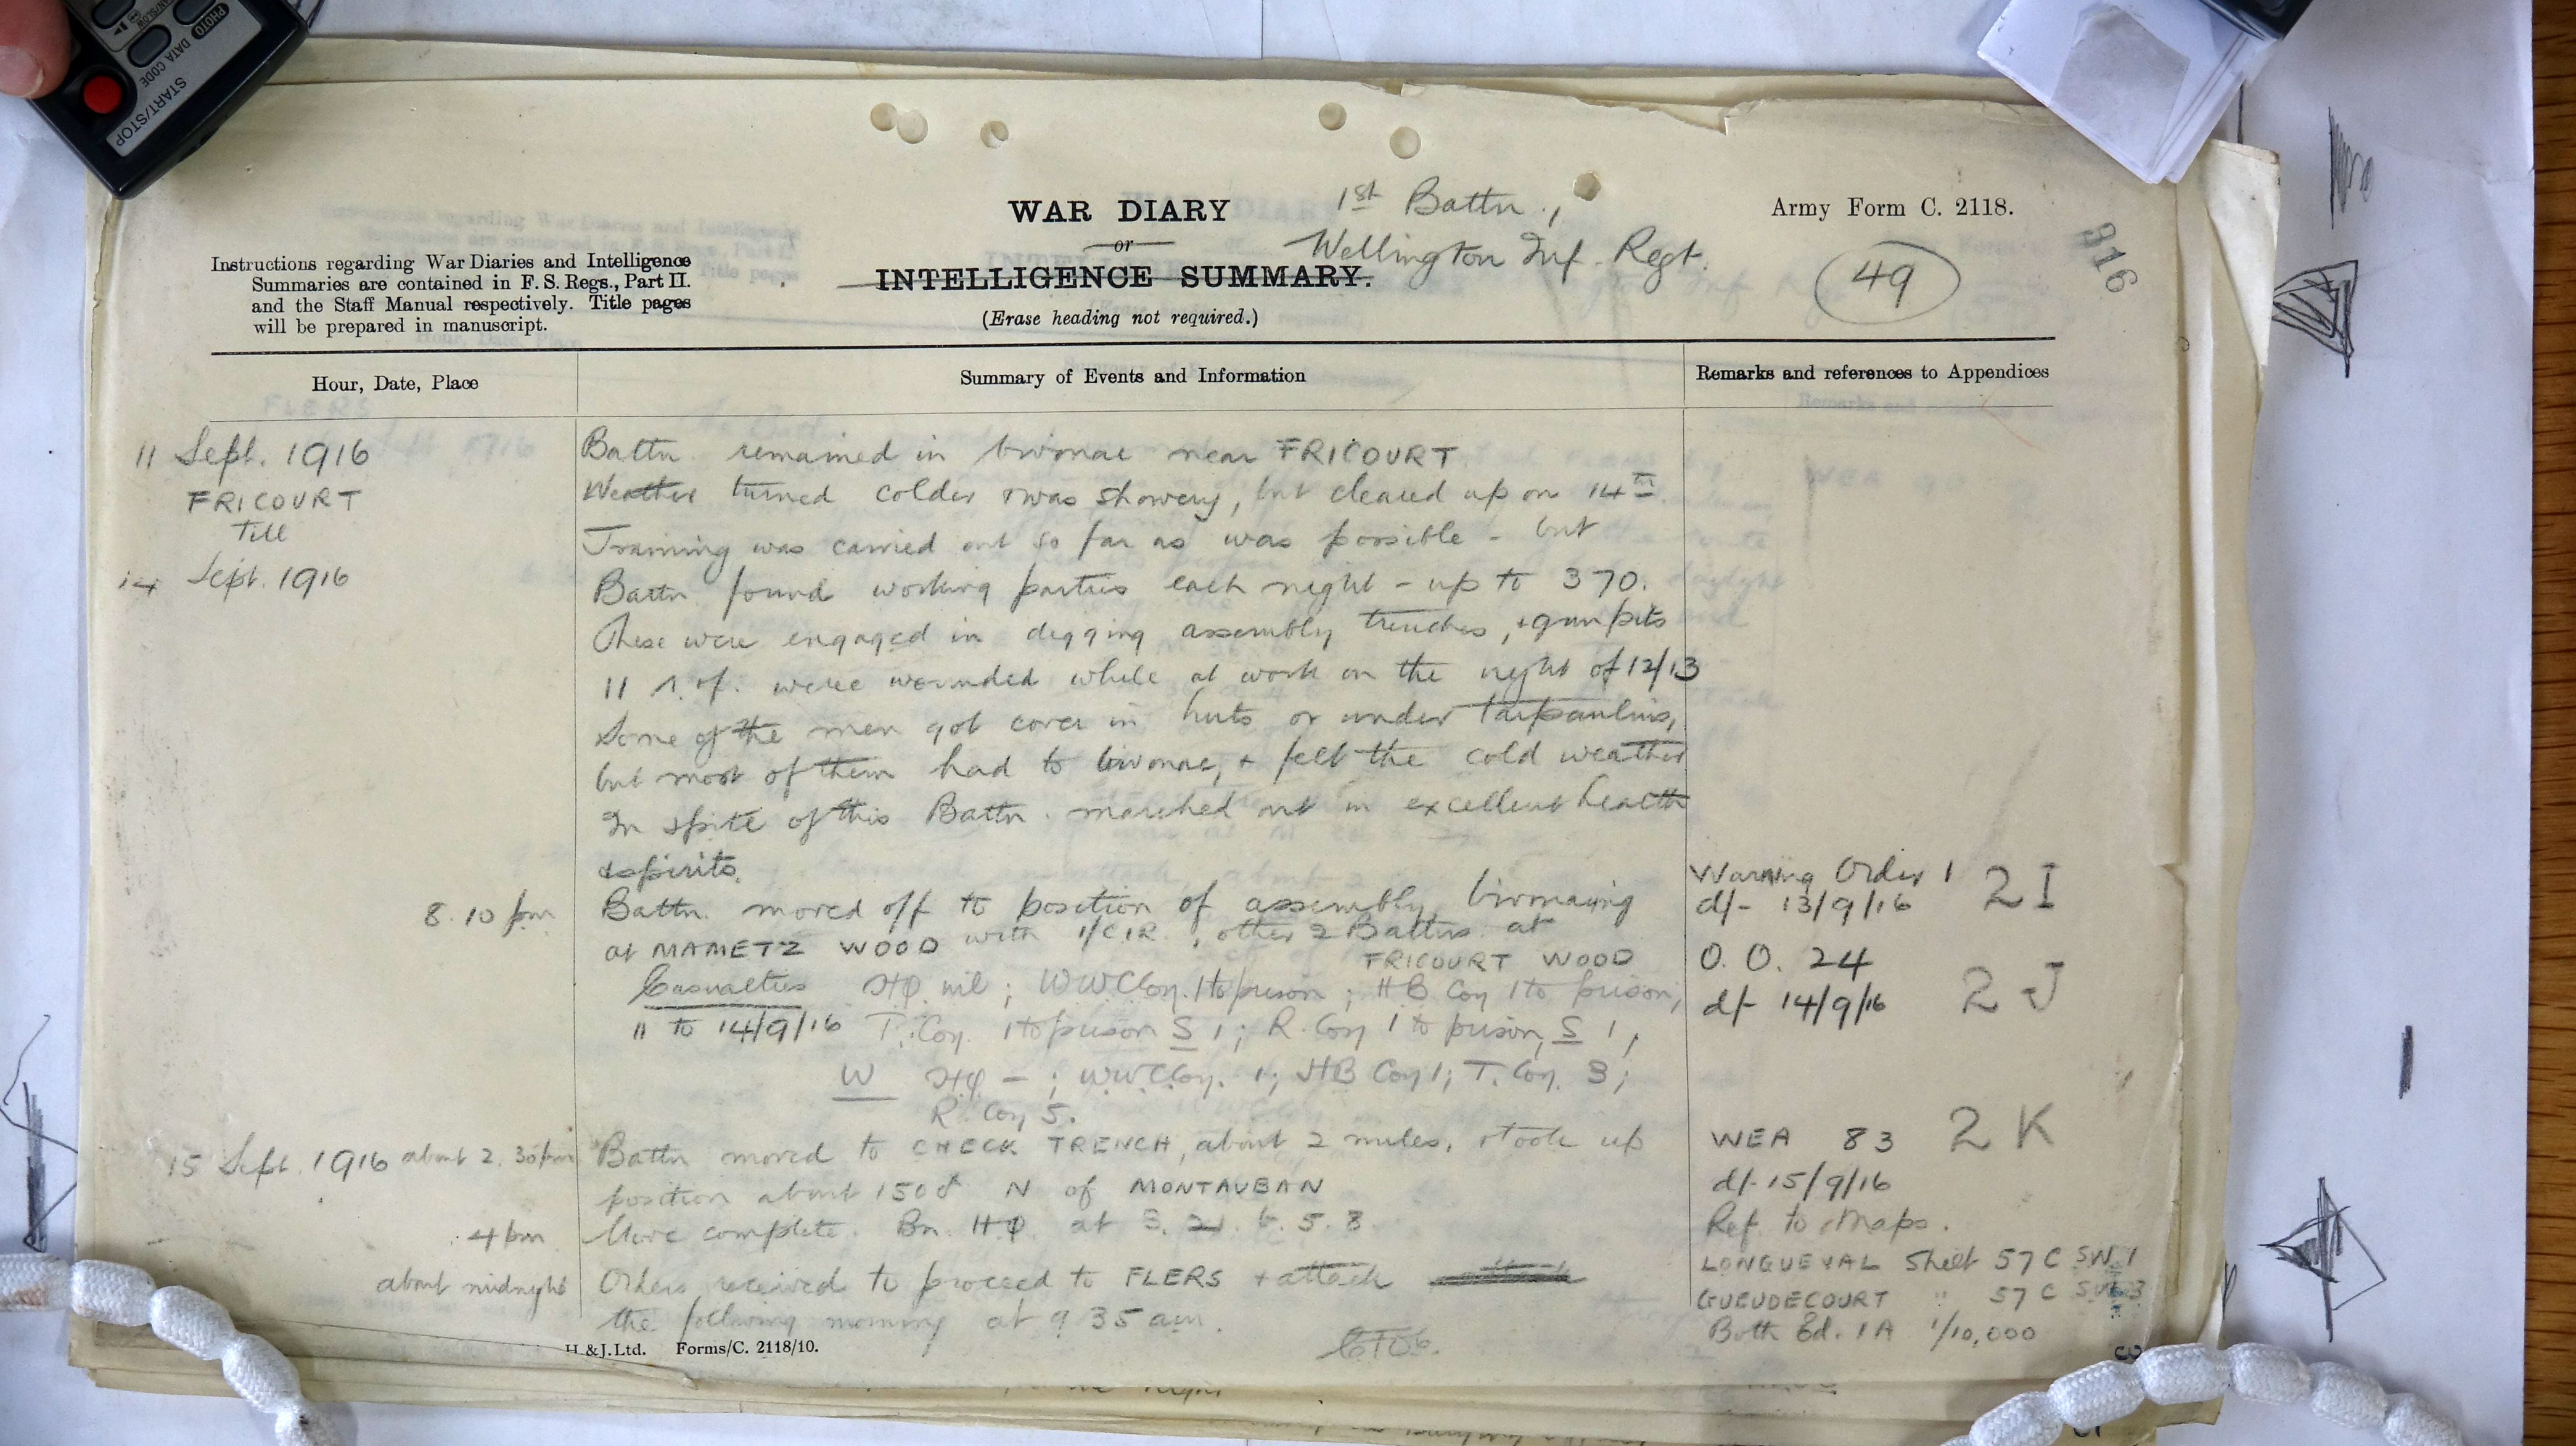 PHOTO
DATA CODE
START/STOP
WAR DIARY
or
INTELLIGENCE SUMMARY.
(Erase heading not required.)
1st Battn.,
Wellington Inf. Regt.
Army Form C. 2118.
49
916
Instructions regarding War Diaries and Intelligence
Summaries are contained in F. S. Regs., Part II.
and the Staff Manual respectively. Title pages
will be prepared in manuscript.
Hour, Date, Place
Summary of Events and Information
Remarks and references to Appendices
11 Sept. 1916
FRICOURT
Till
14 Sept. 1916
Battn remained in bivouac near FRICOURT
Weather turned colder & was showery, but cleared up on 14th.
Training was carried out so far as was possible - but
Battn. found working parties each night - up to 370.
These were engaged in digging assembly trenches, + gun pits
11 r. of. were wounded while at work on the night of 12/13
Some of the men got cover in huts or under tarpaulins,
but most of them had to bivouac, + felt the cold weather
In spite of this Battn. marched out in excellent health
& spirits.
8.10 pm
Battn. moved off to position of assembly bivouacing
at MAMETZ WOOD with 1/C.I.R., other 2 Battns at
FRICOURT WOOD
Casualties HQ nil; WWC Coy. 1 to prison; HB Coy 1 to prison,
11 to 14/9/16 T. Coy. 1 to prison S 1; R. Coy 1 to prison, S 1,
W HQ - ; WWC Coy. 1; HB Coy 1; T. Coy. 3;
R. Coy 5.
15 Sept. 1916 about 2.30 pm
Battn moved to CHECK TRENCH, about 2 miles, & took up
position about 150 N of MONTAUBAN
4 pm
Move complete. Bn. HQ at S. 21. b. 5. 8.
about midnight
Orders received to proceed to FLERS + attack
the following morning at 9 35 am.
Warning Order 1 2 I
d/- 13/9/16
O. O. 24
d/- 14/9/16 2 J
WEA 83 2 K
d/- 15/9/16
Ref. to Maps.
LONGUEVAL Sheet 57 C SW 1
GUEUDECOURT " 57 C SW 3
Both Ed. 1A 1/10,000
H. & J. Ltd. Forms/C. 2118/10.